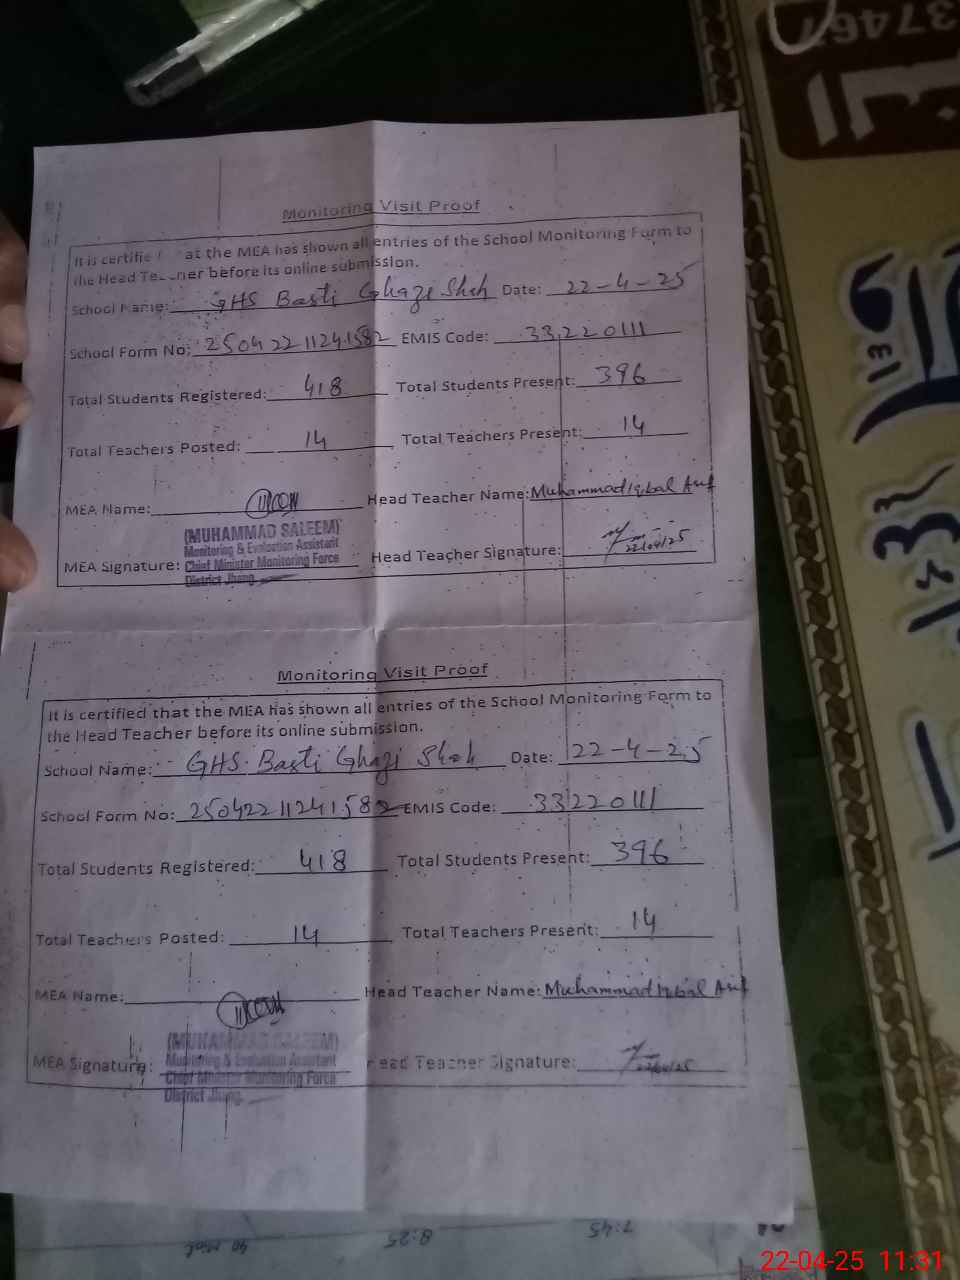 Monitoring Visit Proof
It is certifie at the MEA has shown all entries of the School Monitoring Form to
the Head Te ner before its online submission.
School Name: GHS Basti Ghazi Shah Date: 22-4-25
School Form No: 25042211241582 EMIS Code: 33220111
Total Students Registered: 418 Total Students Present: 396
Total Teachers Posted: 14 Total Teachers Present: 14
MEA Name: Head Teacher Name: Muhammad Iqbal Asif
(MUHAMMAD SALEEM)
Monitoring & Evaluation Assistant
MEA Signature: Chief Minister Monitoring Force Head Teacher Signature: 22/04/25
District Jhang
Monitoring Visit Proof
It is certified that the MEA has shown all entries of the School Monitoring Form to
the Head Teacher before its online submission.
School Name: GHS. Basti Ghazi Shah Date: 22-4-25
School Form No: 25042211241582 EMIS Code: 33220111
Total Students Registered: 418 Total Students Present: 396
Total Teachers Posted: 14 Total Teachers Present: 14
MEA Name: Head Teacher Name: Muhammad Iqbal Asif
(MUHAMMAD SALEEM)
MEA Signature: Monitoring & Evaluation Assistant Head Teacher Signature: 22/04/25
Chief Minister Monitoring Force
District Jhang.
7:45
8:25
37467
22-04-25 11:31